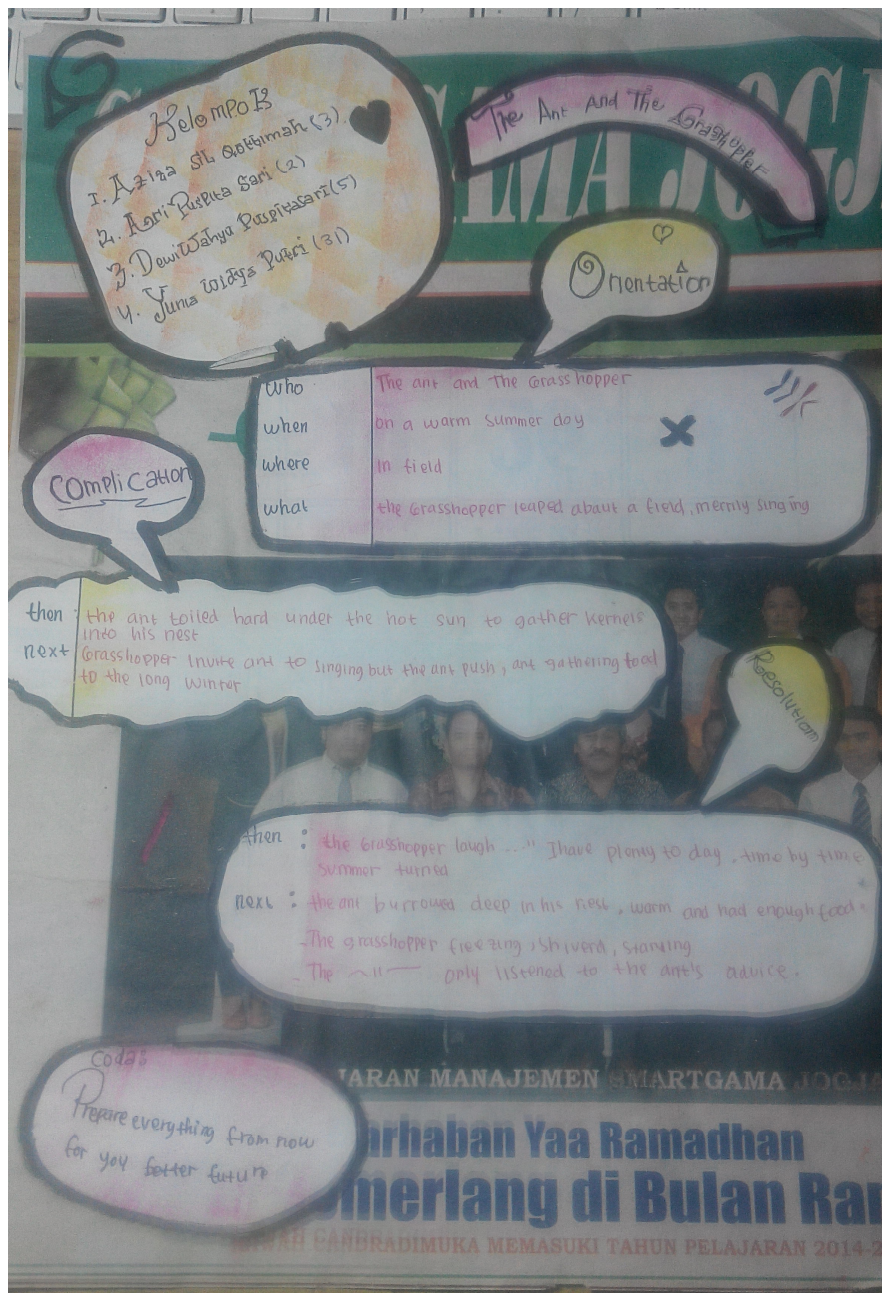 Kelompok
1. Aziza sit Qottimah (3)
2. Anri Puspita Sari (2)
3. Dewi Wahyu Puspitasari (5)
4. Yunia Widya Putri (31)
The Ant And The Grasshopper
AMA JOGJ
Orientation
who The ant and The Grasshopper
when on a warm summer day
where In field
what the Grasshopper leaped abaut a field, merrily singing
Complication
then : the ant toiled hard under the hot sun to gather kernels
into his nest
next Grasshopper Invite ant to singing but the ant push, ant gathering food
to the long winter
Resolution
then : the Grasshopper laugh ...." I have plenty to day , time by time
summer turned
next : the ant burrowed deep in his nest , warm and had enough food.
-The grasshopper freezing , shiverd, starving
- The —〃— only listened to the ant's advice.
Coda:
Prepare everything from now
for you better future
JARAN MANAJEMEN SMARTGAMA JOGJA
arhaban Yaa Ramadhan
merlang di Bulan Ra
CANDRADIMUKA MEMASUKI TAHUN PELAJARAN 2014-2